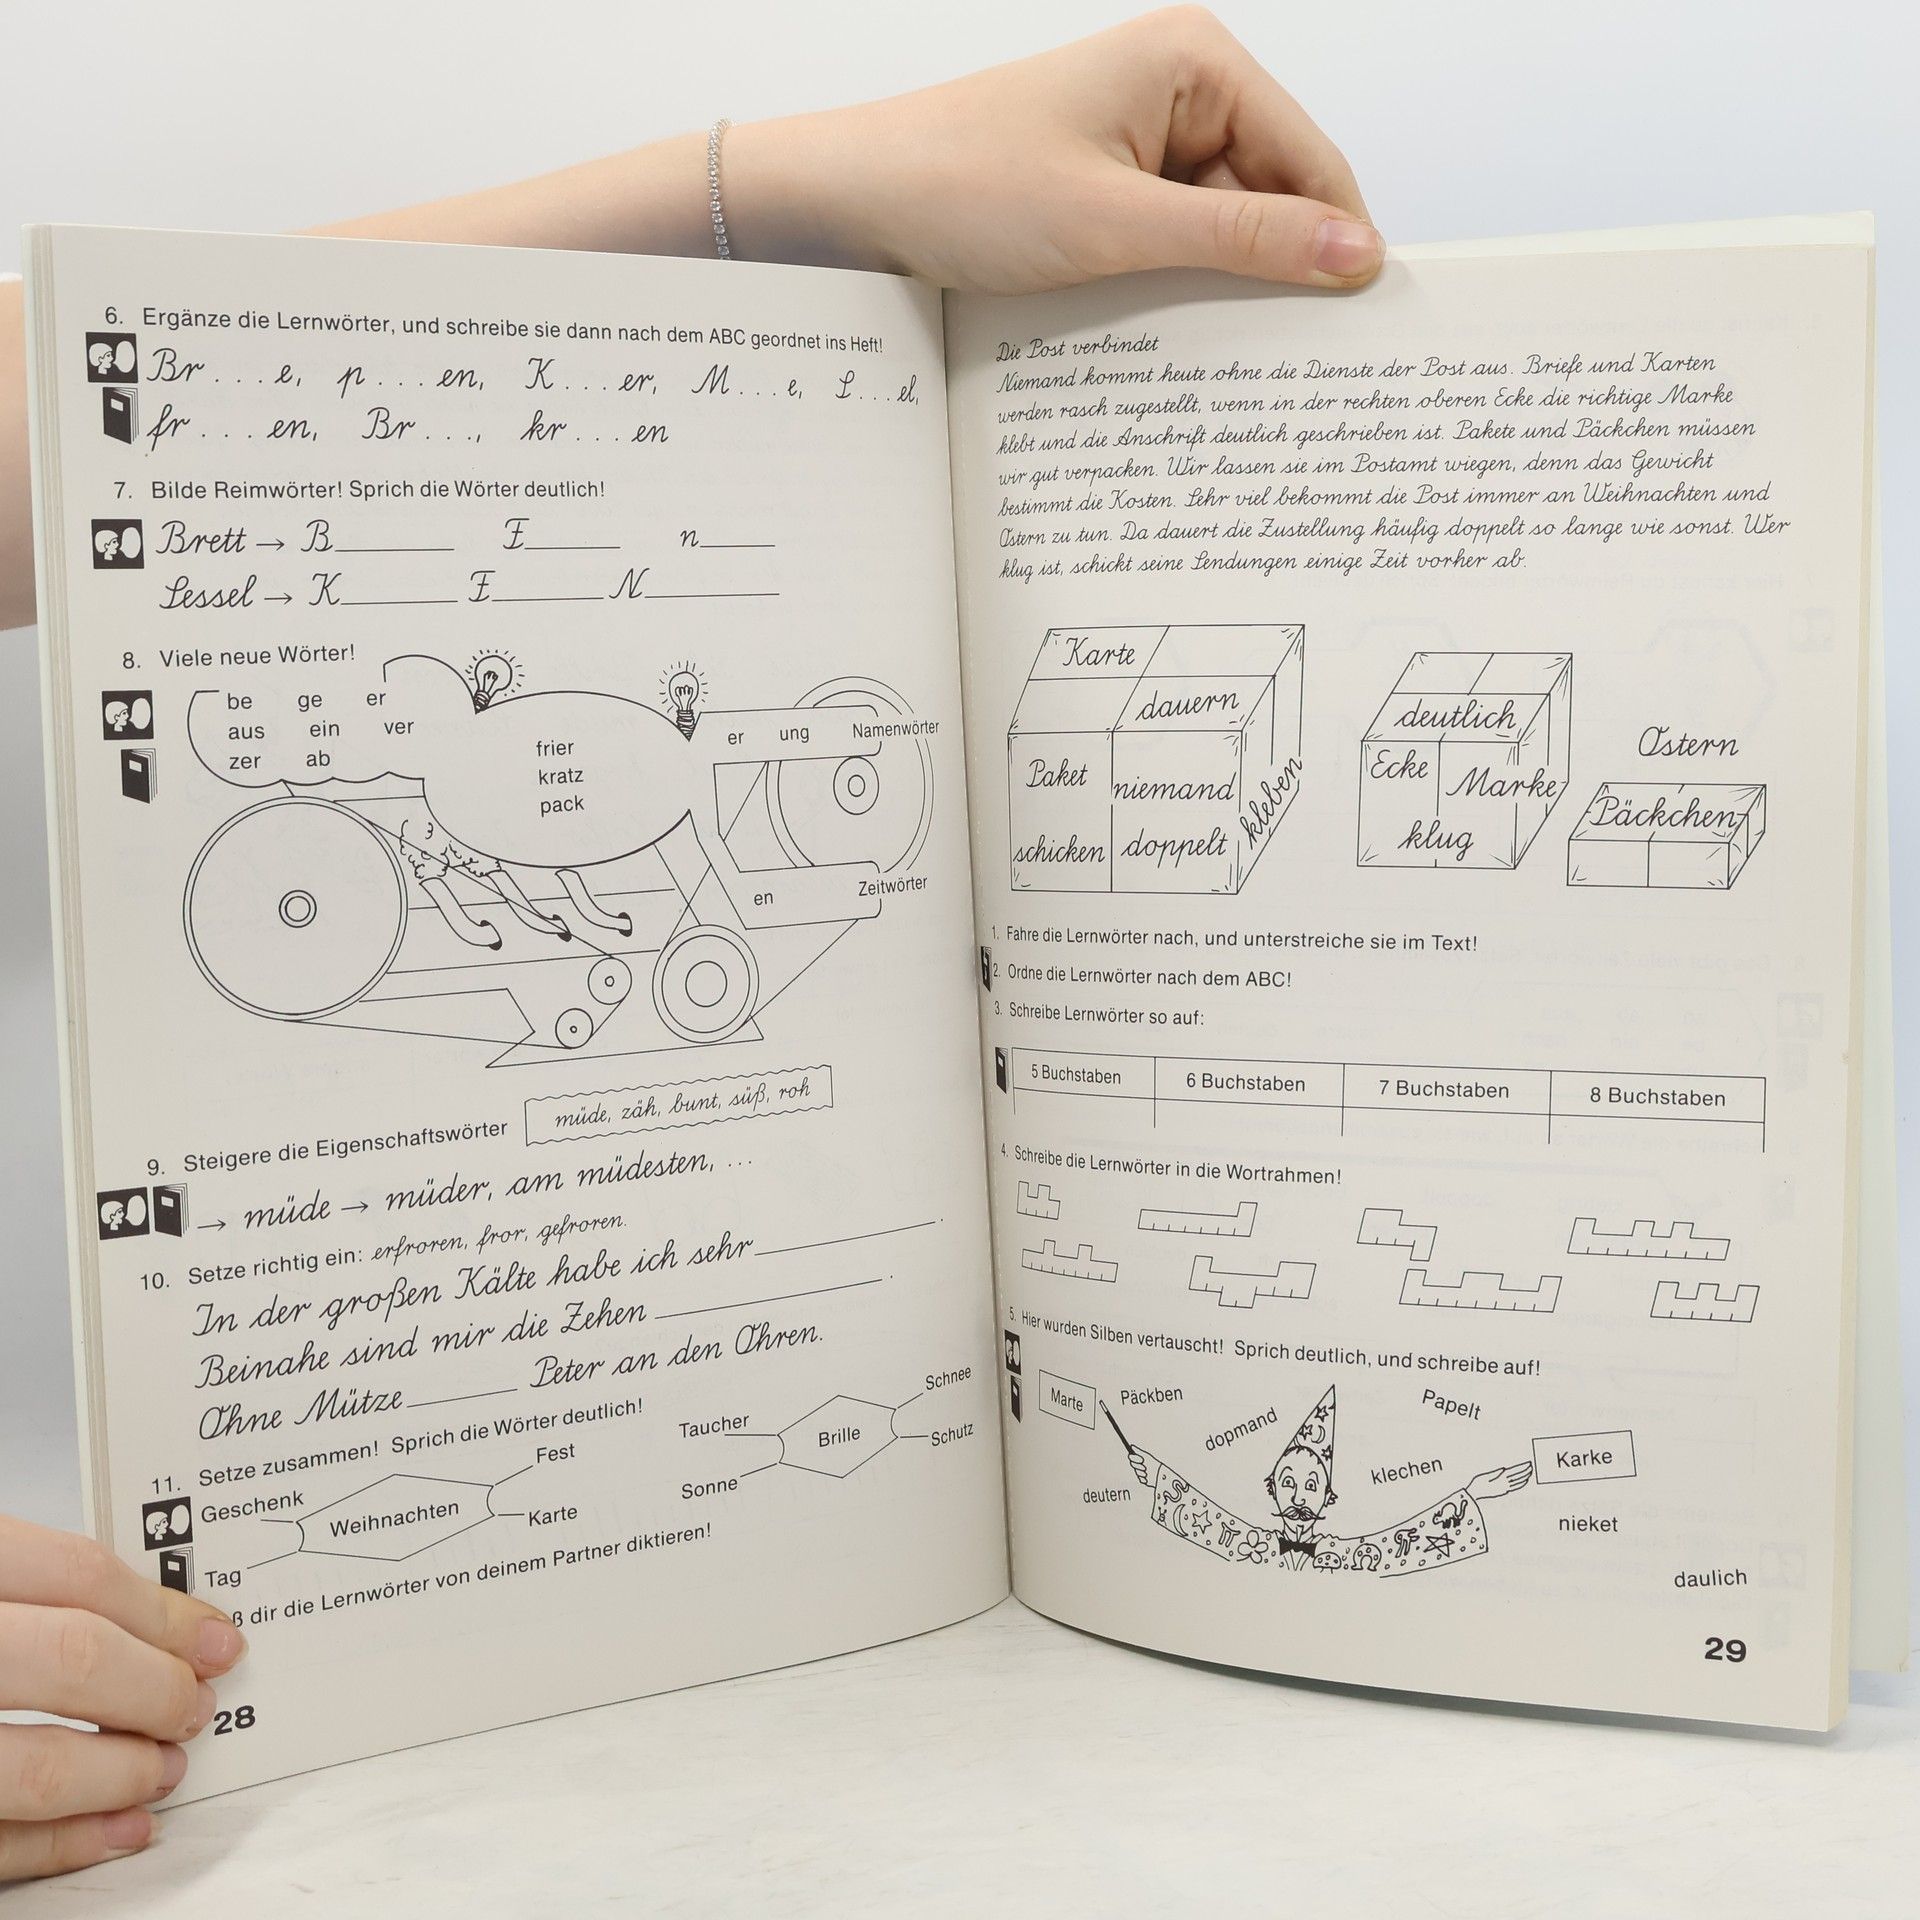 6. Ergänze die Lernwörter, und schreibe sie dann nach dem ABC geordnet ins Heft!
Br . . . e, p . . . en, K . . . er, M . . . e, S . . . el,
fr . . . en, Br . . ., kr . . . en
7. Bilde Reimwörter! Sprich die Wörter deutlich!
Brett → B______ F______ n______
Sessel → K______ F______ N______
8. Viele neue Wörter!
be ge er
aus ein ver
zer ab
frier
kratz
pack
er ung Namenwörter
en Zeitwörter
9. Steigere die Eigenschaftswörter
müde, zäh, bunt, süß, roh
→ müde → müder, am müdesten, ...
10. Setze richtig ein: erfroren, fror, gefroren.
In der großen Kälte habe ich sehr ______.
Beinahe sind mir die Zehen ______.
Ohne Mütze ______ Peter an den Ohren.
11. Setze zusammen! Sprich die Wörter deutlich!
Geschenk Fest
Weihnachten
Tag Karte
Taucher Schnee
Brille
Sonne Schutz
ß dir die Lernwörter von deinem Partner diktieren!
28
Die Post verbindet
Niemand kommt heute ohne die Dienste der Post aus. Briefe und Karten
werden rasch zugestellt, wenn in der rechten oberen Ecke die richtige Marke
klebt und die Anschrift deutlich geschrieben ist. Pakete und Päckchen müssen
wir gut verpacken. Wir lassen sie im Postamt wiegen, denn das Gewicht
bestimmt die Kosten. Sehr viel bekommt die Post immer an Weihnachten und
Ostern zu tun. Da dauert die Zustellung häufig doppelt so lange wie sonst. Wer
klug ist, schickt seine Sendungen einige Zeit vorher ab.
Karte
dauern
Paket
niemand
kleben
schicken
doppelt
deutlich
Ecke
Marke
klug
Ostern
Päckchen
1. Fahre die Lernwörter nach, und unterstreiche sie im Text!
2. Ordne die Lernwörter nach dem ABC!
3. Schreibe Lernwörter so auf:
5 Buchstaben 6 Buchstaben 7 Buchstaben 8 Buchstaben
4. Schreibe die Lernwörter in die Wortrahmen!
5. Hier wurden Silben vertauscht! Sprich deutlich, und schreibe auf!
Marte
Päckben
Papelt
dopmand
Karke
klechen
deutern
nieket
daulich
29